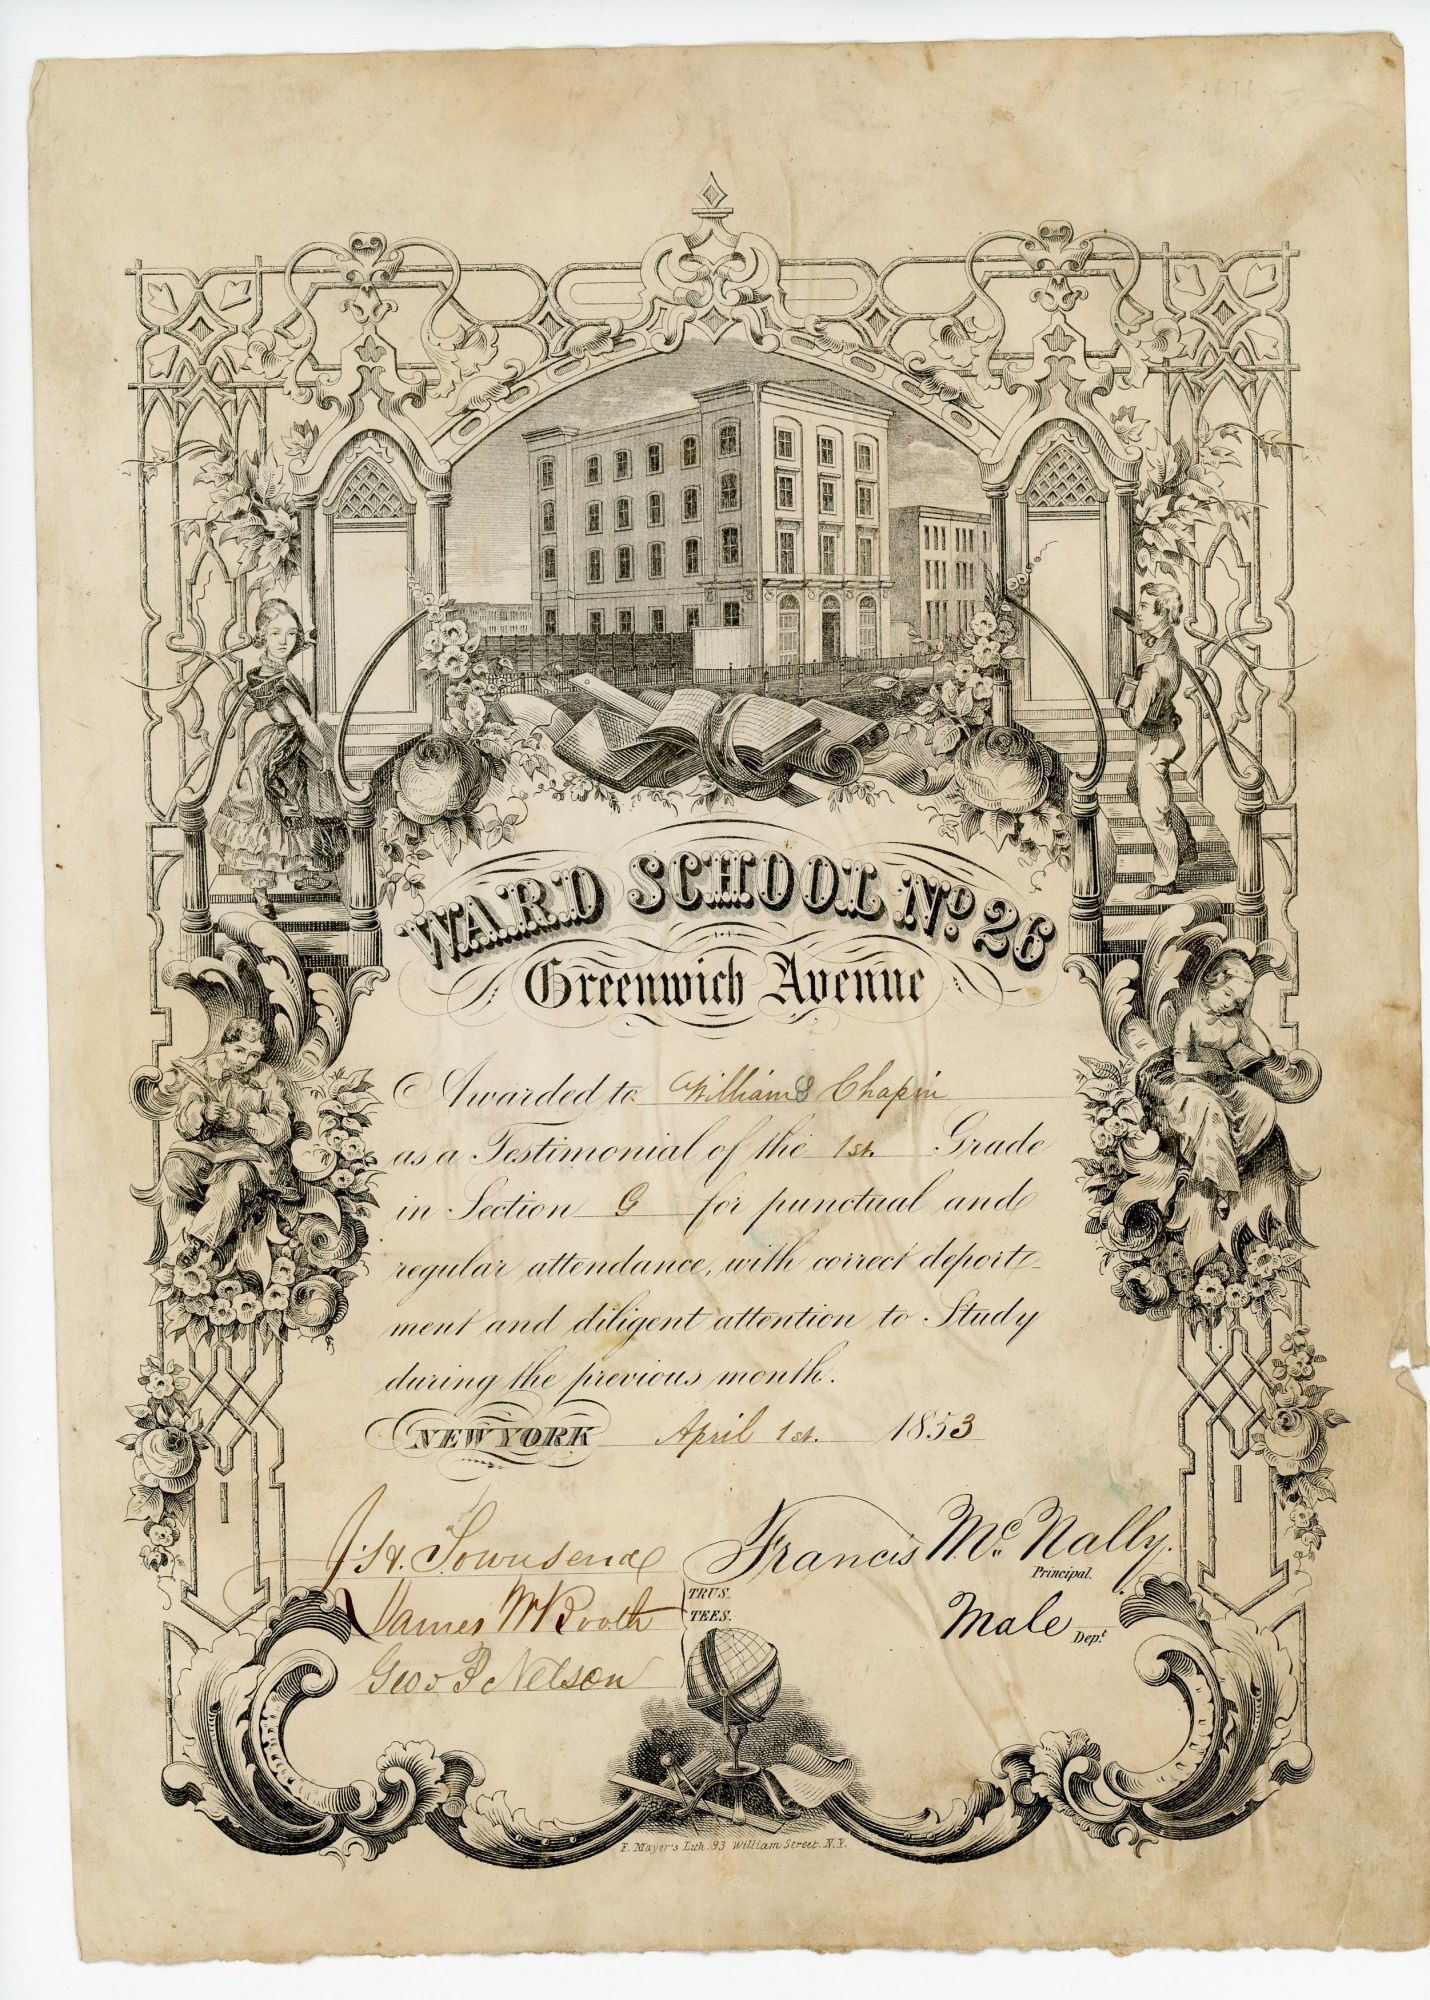 WARD SCHOOL No. 26
Greenwich Avenue
Awarded to William S Chapin
as a Testimonial of the 1st. Grade
in Section G for punctual and
regular attendance, with correct deport-
ment and diligent attention to Study
during the previous month.
NEW YORK April 1st. 1853
J. H. Townsend
Francis Mc. Nally.
Principal.
James W Booth
TRUS-
TEES.
Male Dept.
Geo. P Nelson
F. Mayer's Lith. 93 William Street. N.Y.